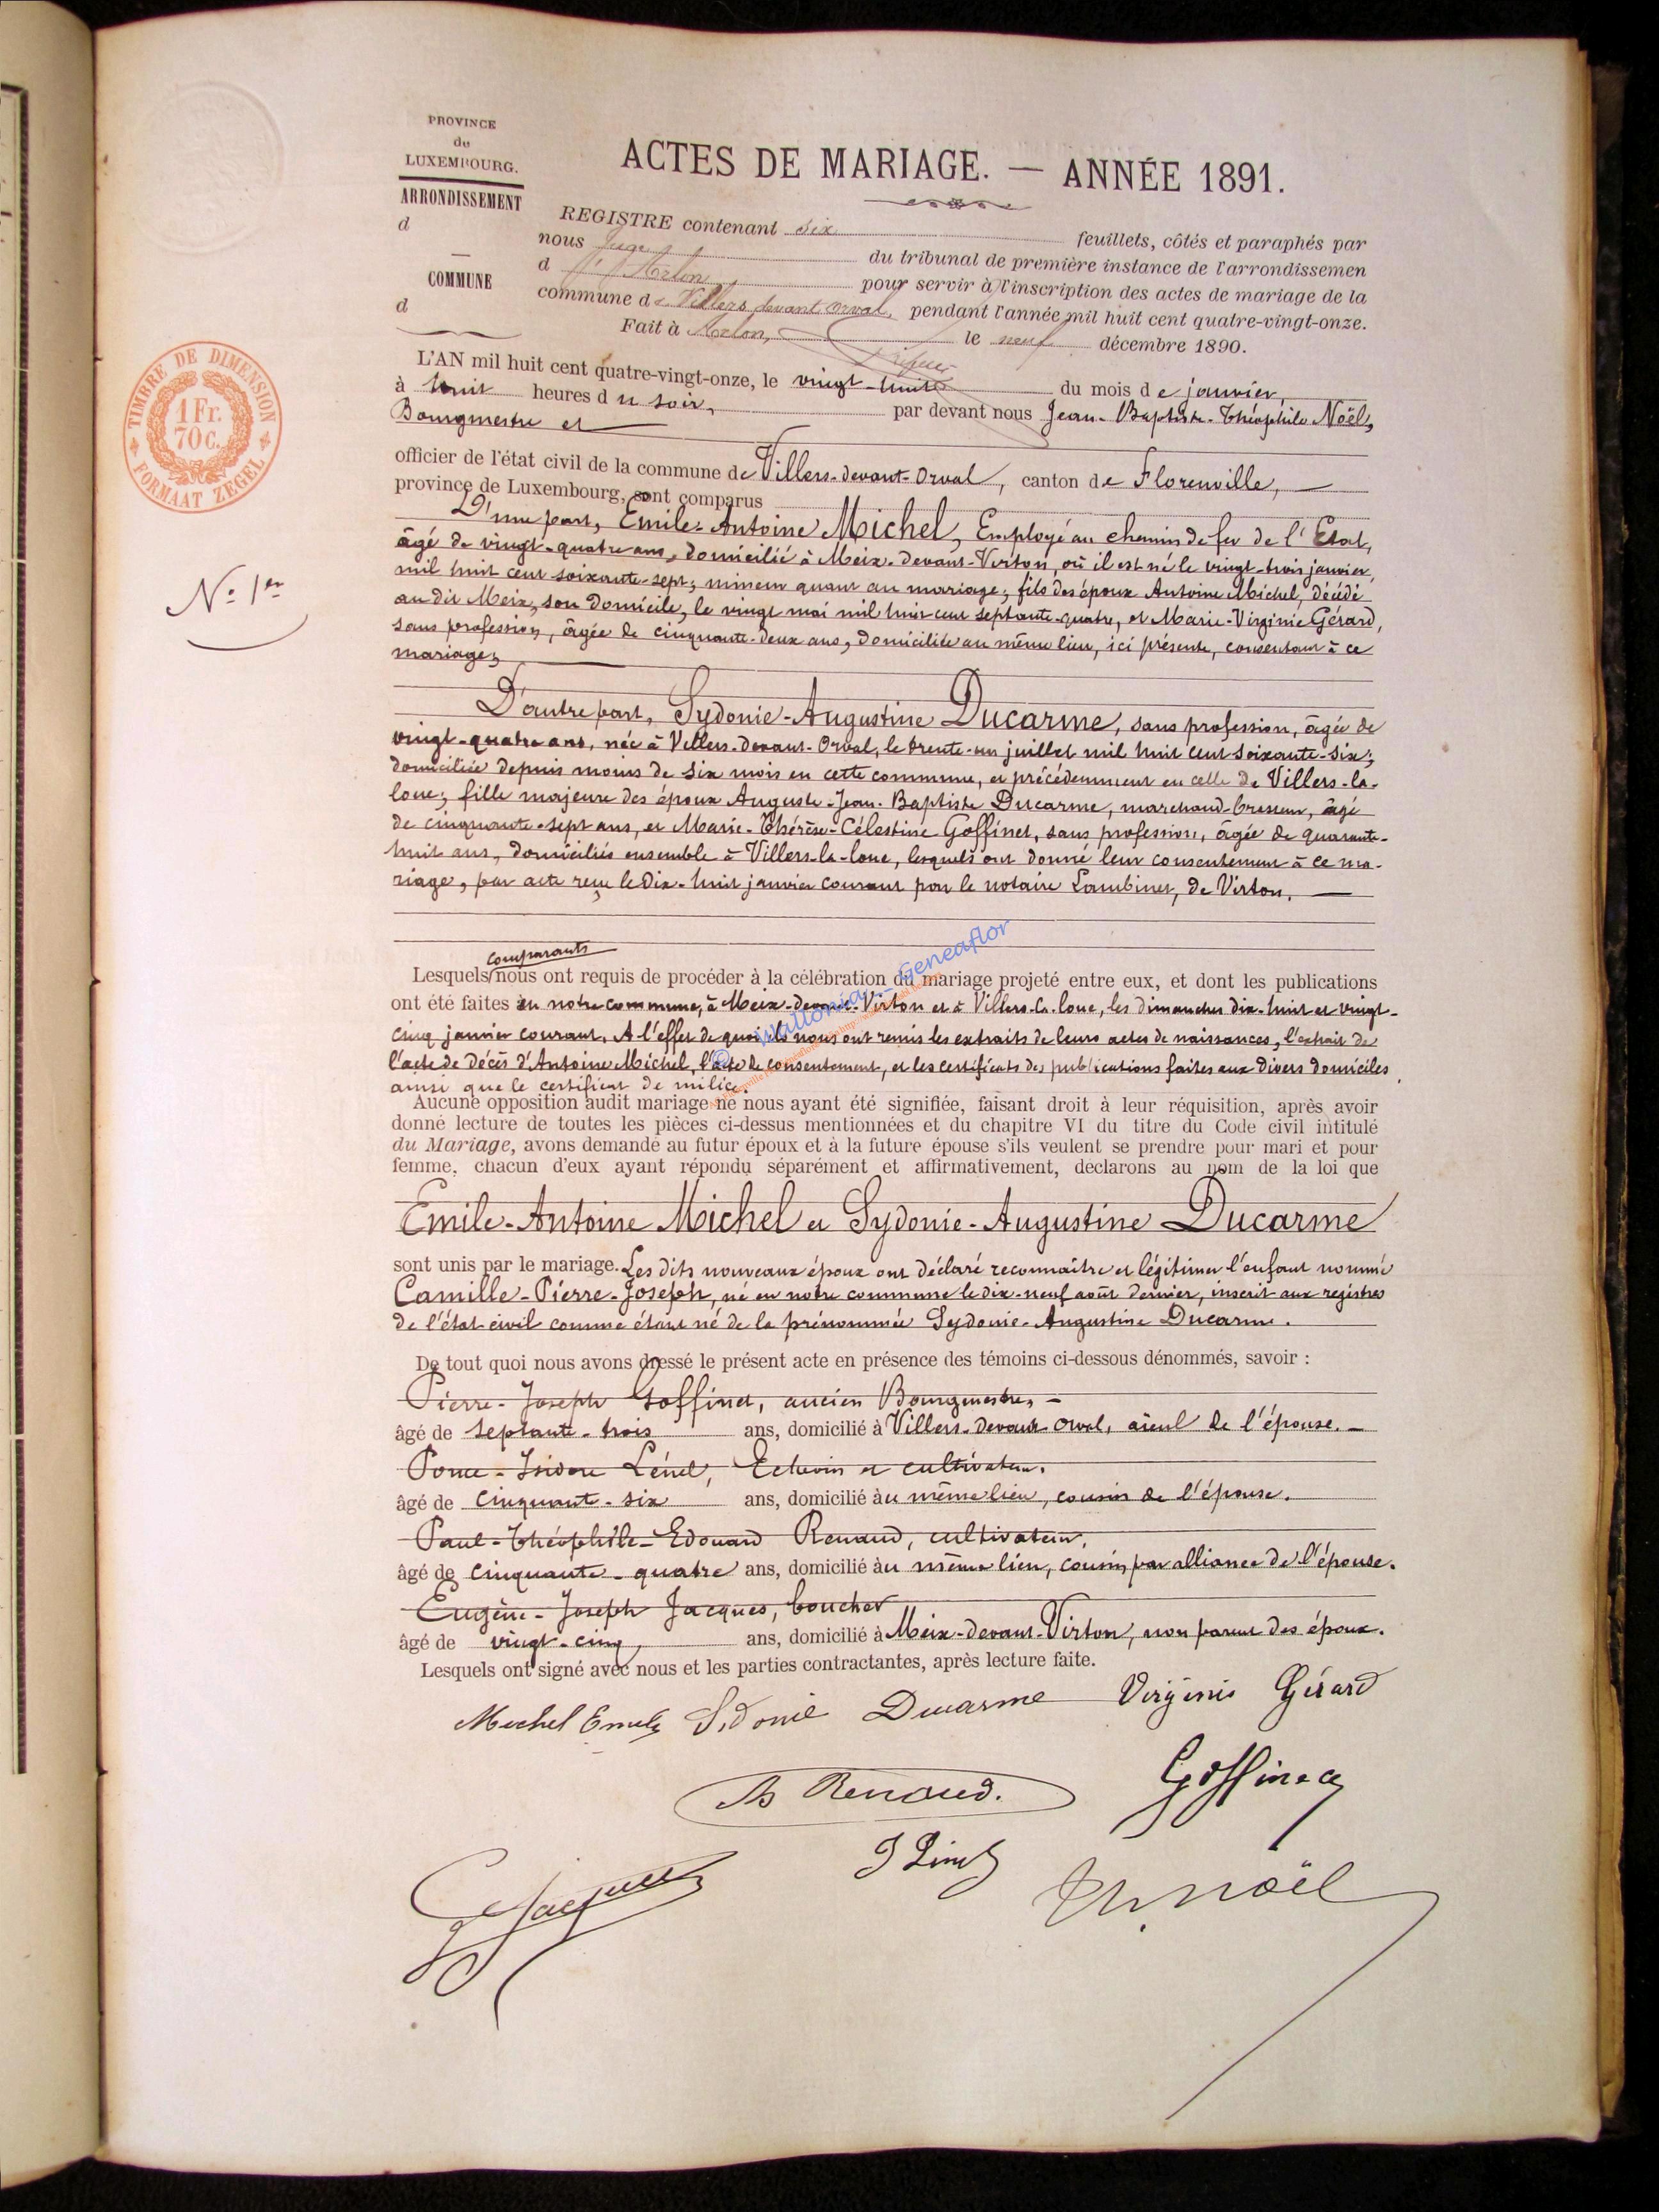 PROVINCE
de
LUXEMBOURG.
ARRONDISSEMENT
d
COMMUNE
d
ACTES DE MARIAGE. — ANNÉE 1891.
REGISTRE contenant six feuillets, côtés et paraphés par
nous Juge du tribunal de première instance de l'arrondissemen
d'Arlon pour servir à l'inscription des actes de mariage de la
commune de Villers devant Orval, pendant l'année mil huit cent quatre-vingt-onze.
Fait à Arlon, le neuf décembre 1890.
TIMBRE DE DIMENSION
1 Fr.
70 c.
FORMAAT ZEGEL
N° 1er
L'AN mil huit cent quatre-vingt-onze, le vingt-huit du mois de janvier,
à huit heures du soir, par devant nous Jean-Baptiste-Théophile Noël,
Bourgmestre et
officier de l'état civil de la commune de Villers-devant-Orval, canton de Florenville,
province de Luxembourg, sont comparus
D'une part, Emile-Antoine Michel, Employé au chemin de fer de l'Etat,
âgé de vingt-quatre ans, domicilié à Meix-devant-Virton, où il est né le vingt-trois janvier
mil huit cent soixante-sept; mineur quant au mariage; fils des époux Antoine Michel, décédé
au dit Meix, son domicile, le vingt mai mil huit cent septante-quatre, et Marie-Virginie Gérard,
sans profession, âgée de cinquante-deux ans, domiciliée au même lieu, ici présente, consentant à ce
mariage;
D'autre part, Sydonie-Augustine Ducarme, sans profession, âgée de
vingt-quatre ans, née à Villers-devant-Orval, le trente-un juillet mil huit cent soixante-six;
domiciliée depuis moins de six mois en cette commune, et précédemment en celle de Villers-la-
loue; fille majeure des époux Auguste-Jean-Baptiste Ducarme, marchand-brasseur, âgé
de cinquante-sept ans, et Marie-Thérèse-Célestine Goffinet, sans profession, âgée de quarante-
huit ans, domiciliés ensemble à Villers-la-loue, lesquels ont donné leur consentement à ce ma-
riage, par acte reçu le dix-huit janvier courant par le notaire Lambinet, de Virton.
comparants
Lesquels nous ont requis de procéder à la célébration du mariage projeté entre eux, et dont les publications
ont été faites en notre commune, à Meix-devant-Virton et à Villers-la-loue, les dimanches dix-huit et vingt-
cinq janvier courant. A l'effet de quoi ils nous ont remis les extraits de leurs actes de naissances, l'extrait de
l'acte de décès d'Antoine Michel, l'acte de consentement, et les certificats des publications faites aux divers domiciles
ainsi que le certificat de milice.
© Wallonia - Geneaflor
Aucune opposition audit mariage ne nous ayant été signifiée, faisant droit à leur réquisition, après avoir
donné lecture de toutes les pièces ci-dessus mentionnées et du chapitre VI du titre du Code civil intitulé
du Mariage, avons demandé au futur époux et à la future épouse s'ils veulent se prendre pour mari et pour
femme, chacun d'eux ayant répondu séparément et affirmativement, declarons au nom de la loi que
Emile-Antoine Michel et Sydonie-Augustine Ducarme
sont unis par le mariage. Les dits nouveaux époux ont déclaré reconnaître et légitimer l'enfant nommé
Camille-Pierre-Joseph, né en notre commune le dix-neuf août dernier, inscrit aux registres
de l'état civil comme étant né de la prénommée Sydonie-Augustine Ducarme.
De tout quoi nous avons dressé le présent acte en présence des témoins ci-dessous dénommés, savoir :
Pierre-Joseph Goffinet, ancien Bourgmestre,
âgé de septante-trois ans, domicilié à Villers-devant-Orval, aïeul de l'épouse.
Isidore Echevin et cultivateur.
âgé de cinquante-six ans, domicilié au même lieu, cousin de l'épouse.
Paul-Théophile-Edouard Renaud, cultivateur,
âgé de cinquante-quatre ans, domicilié au même lieu, cousin par alliance de l'épouse.
Eugène-Joseph Jacques, boucher
âgé de vingt-cinq, ans, domicilié à Meix-devant-Virton, non parent des époux.
Lesquels ont signé avec nous et les parties contractantes, après lecture faite.
Michel Emile Sidonie Ducarme Virginie Gérard
Renaud. Goffinet
Jacques Th. Noël